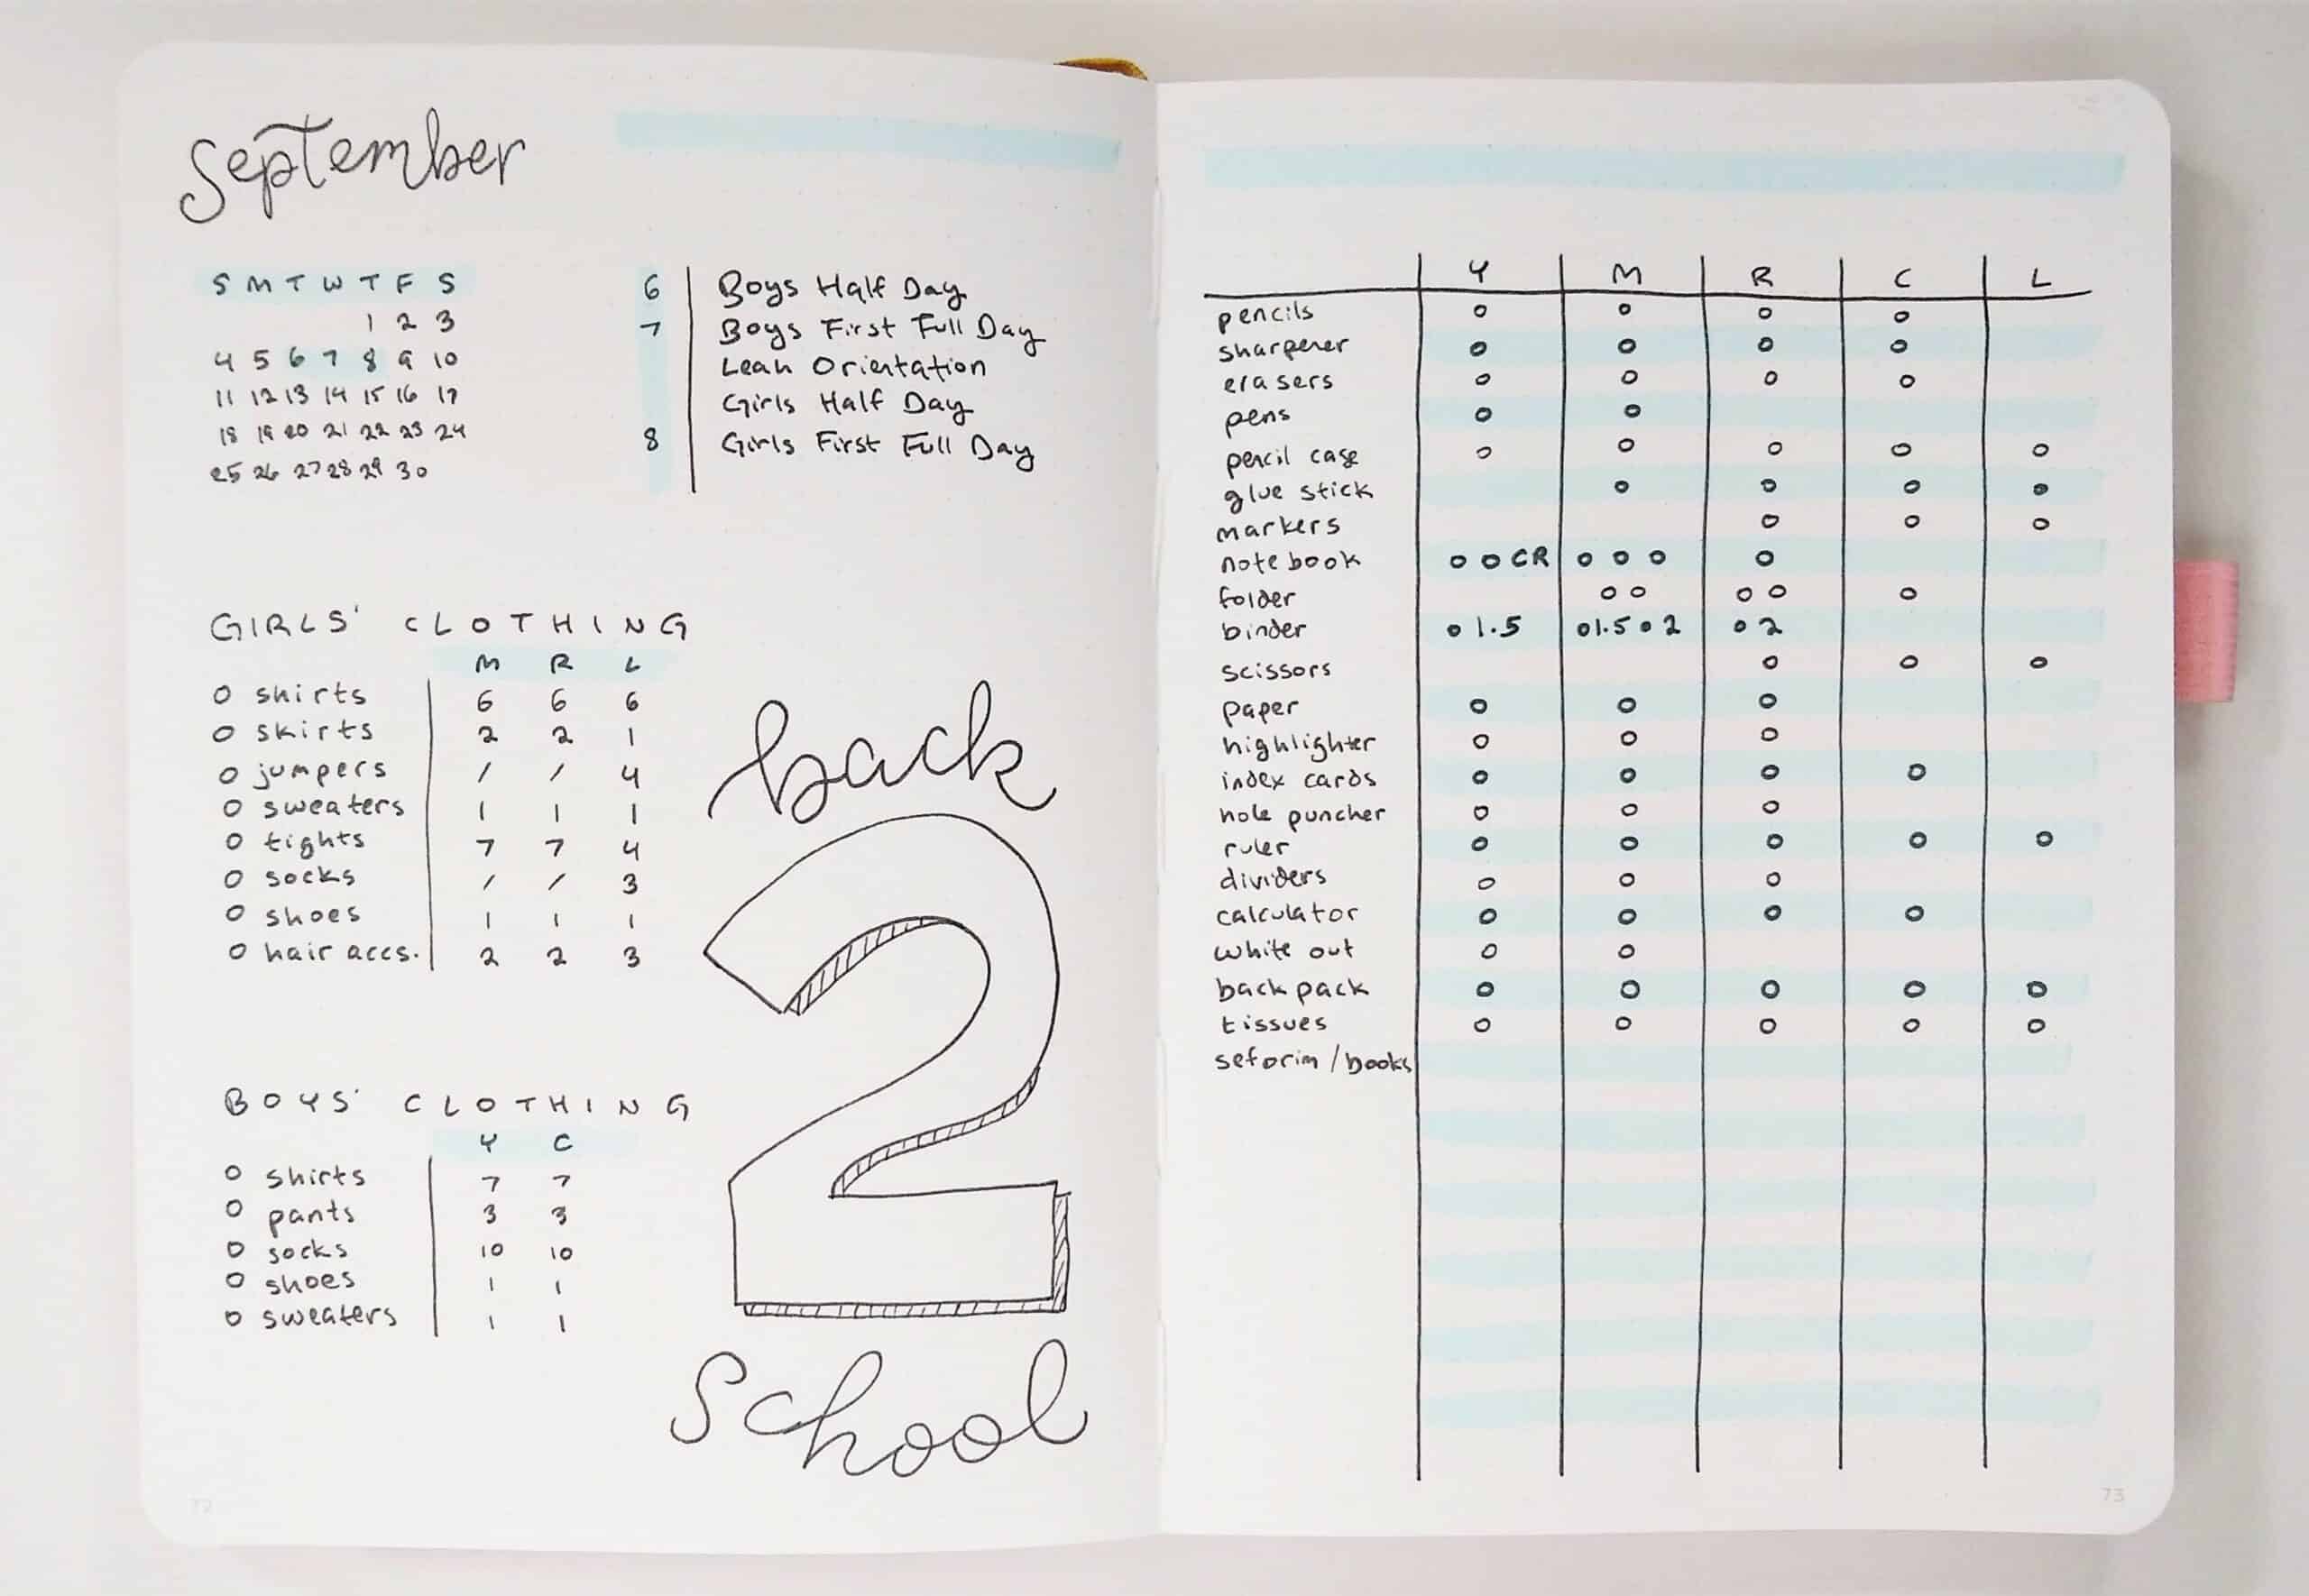 September
S M T W T F S
1 2 3
4 5 6 7 8 9 10
11 12 13 14 15 16 17
18 19 20 21 22 23 24
25 26 27 28 29 30
6 Boys Half Day
7 Boys First Full Day
Leah Orientation
Girls Half Day
8 Girls First Full Day
GIRLS' CLOTHING
M R L
o shirts 6 6 6
o skirts 2 2 1
o jumpers / / 4
o sweaters 1 1 1
o tights 7 7 4
o socks / / 3
o shoes 1 1 1
o hair accs. 2 2 3
BOYS' CLOTHING
Y C
o shirts 7 7
o pants 3 3
o socks 10 10
o shoes 1 1
o sweaters 1 1
back
2
School
72
Y M R C L
pencils o o o o
sharpener o o o o
erasers o o o o
pens o o
pencil case o o o o o
glue stick o o o o
markers o o o
notebook o o CR o o o o
folder o o o o o
binder o 1.5 o 1.5 o 2 o 2
scissors o o o
paper o o o
highlighter o o o
index cards o o o o
hole puncher o o o
ruler o o o o o
dividers o o o
calculator o o o o
white out o o
backpack o o o o o
tissues o o o o o
seforim / books
73